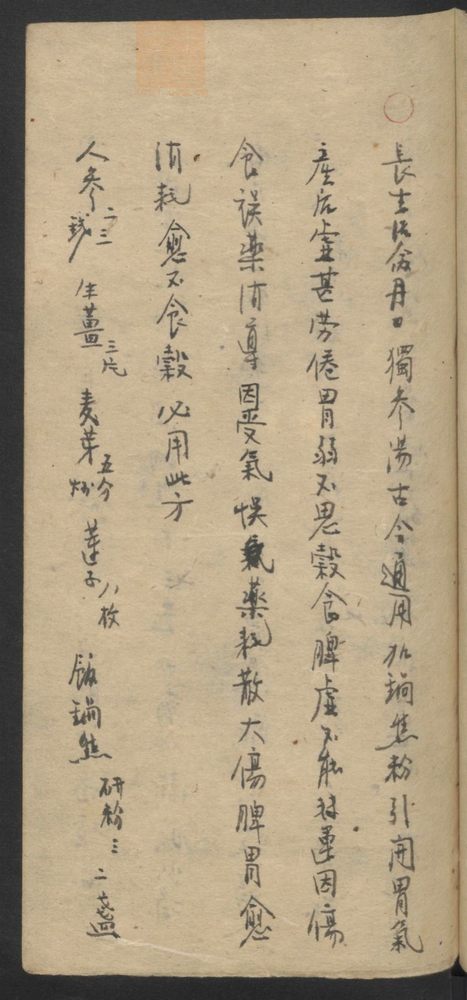 長生活命丹曰獨參湯古今通用加鍋焦粉引開胃氣
產后虛甚勞倦胃弱不思穀食脾虛不能轉運因傷
食誤藥消導因受氣悞氣藥耗散大傷脾胃愈
消耗愈不食穀必用此方
人參二三錢 生薑三片 麦芽五分炒 莲子八枚 飯鍋焦研粉三二盞